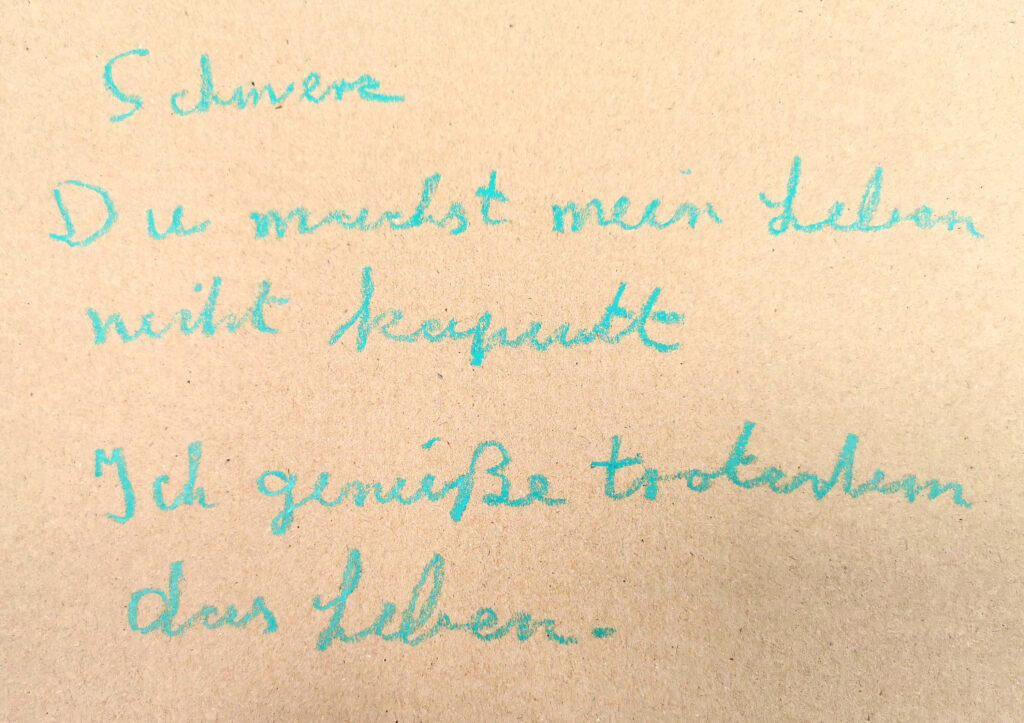 Schmerz
Du machst mein Leben
nicht kaputt
Ich genieße trotzdem
das Leben.